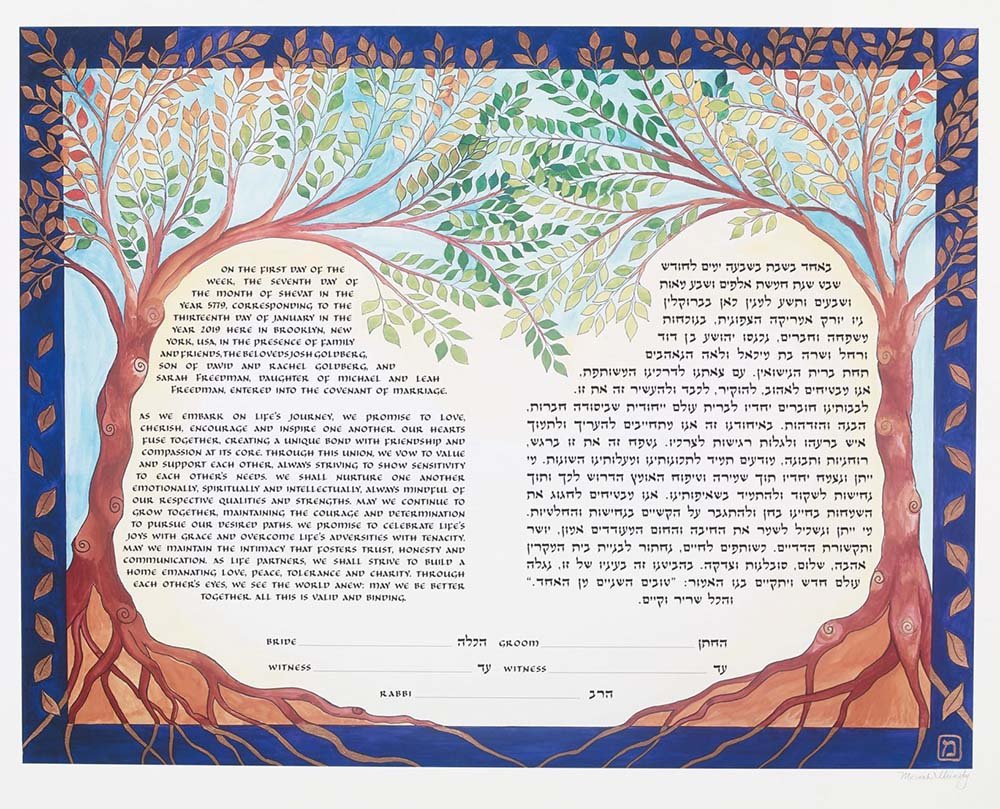 ON THE FIRST DAY OF THE
WEEK, THE SEVENTH DAY OF
THE MONTH OF SHEVAT IN THE
YEAR 5779, CORRESPONDING TO THE
THIRTEENTH DAY OF JANUARY IN THE
YEAR 2019 HERE IN BROOKLYN, NEW
YORK, USA, IN THE PRESENCE OF FAMILY
AND FRIENDS, THE BELOVEDS JOSH GOLDBERG,
SON OF DAVID AND RACHEL GOLDBERG, AND
SARAH FREEDMAN, DAUGHTER OF MICHAEL AND LEAH
FREEDMAN, ENTERED INTO THE COVENANT OF MARRIAGE.
AS WE EMBARK ON LIFE'S JOURNEY, WE PROMISE TO LOVE,
CHERISH, ENCOURAGE AND INSPIRE ONE ANOTHER. OUR HEARTS
FUSE TOGETHER, CREATING A UNIQUE BOND WITH FRIENDSHIP AND
COMPASSION AT ITS CORE. THROUGH THIS UNION, WE VOW TO VALUE
AND SUPPORT EACH OTHER, ALWAYS STRIVING TO SHOW SENSITIVITY
TO EACH OTHER'S NEEDS. WE SHALL NURTURE ONE ANOTHER
EMOTIONALLY, SPIRITUALLY AND INTELLECTUALLY, ALWAYS MINDFUL OF
OUR RESPECTIVE QUALITIES AND STRENGTHS. MAY WE CONTINUE TO
GROW TOGETHER, MAINTAINING THE COURAGE AND DETERMINATION
TO PURSUE OUR DESIRED PATHS. WE PROMISE TO CELEBRATE LIFE'S
JOYS WITH GRACE AND OVERCOME LIFE'S ADVERSITIES WITH TENACITY.
MAY WE MAINTAIN THE INTIMACY THAT FOSTERS TRUST, HONESTY AND
COMMUNICATION. AS LIFE PARTNERS, WE SHALL STRIVE TO BUILD A
HOME EMANATING LOVE, PEACE, TOLERANCE AND CHARITY. THROUGH
EACH OTHER'S EYES, WE SEE THE WORLD ANEW; MAY WE BE BETTER
TOGETHER. ALL THIS IS VALID AND BINDING.
באחד בשבת בשבעה ימים לחודש
שבט שנת חמשת אלפים ושבע מאות
ושבעים ותשע למנין כאן בברוקלין
ניו יורק אמריקה הצפונית, בנוכחות
משפחה וחברים, נכנסו יהושע בן דוד
ורחל ושרה בת מיכאל ולאה הנאהבים
תחת ברית הנישואין. עם צאתנו לדרכינו המשותפת,
אנו מבטיחים לאהוב, להוקיר, לכבד ולהעשיר זה את זו.
לבבותינו חוברים יחדיו לברית עולם ייחודית שביסודה חברות,
הבנה והזדהות. באיחודנו זה אנו מתחייבים להעריך ולתמוך
איש ברעהו ולגלות רגישות לצרכיו. נטפח זה את זו ברגש,
רוחניות ותבונה, מודעים תמיד לתכונותינו ומעלותינו השונות. מי
ייתן ונצמח יחדיו תוך שמירה וטיפוח האומץ הדרוש לכך ותוך
נחישות לשקוד ולהתמיד בשאיפותינו. אנו מבטיחים לחגוג את
השמחות בחיינו בחן ולהתגבר על הקשיים בנחישות והחלטיות.
מי ייתן ונשכיל לשמר את החיבה והחום המעודדים אמון, יושר
ותקשורת הדדיים. כשותפים לחיים, נחתור לבניית בית המקרין
אהבה, שלום, סובלנות וצדקה. בהביטנו זה בעיניו של זו, נגלה
עולם חדש ויתקיים בנו האמור: "טובים השניים מן האחד."
והכל שריר וקיים.
BRIDE הכלה GROOM החתן
WITNESS עד WITNESS עד
RABBI הרב
מ